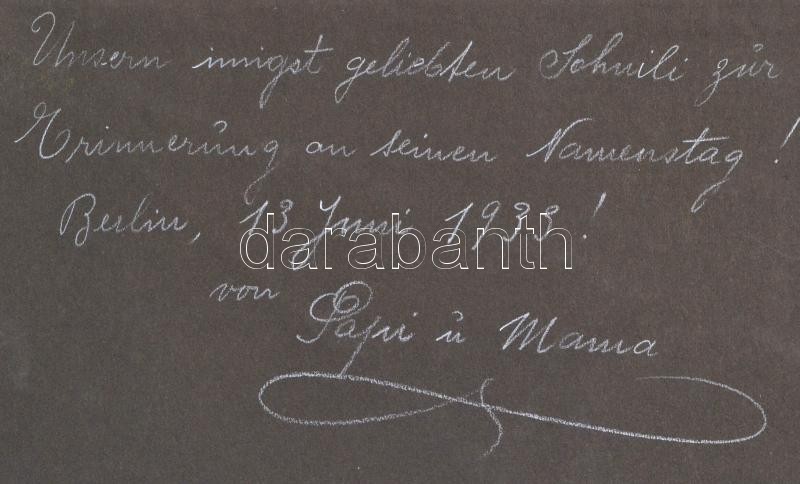 Unsern innigst geliebten Sohnili zur
Erinnerung an seinen Namenstag!
Berlin, 13 Juni 1933!
darabanth
von Papi u Mama